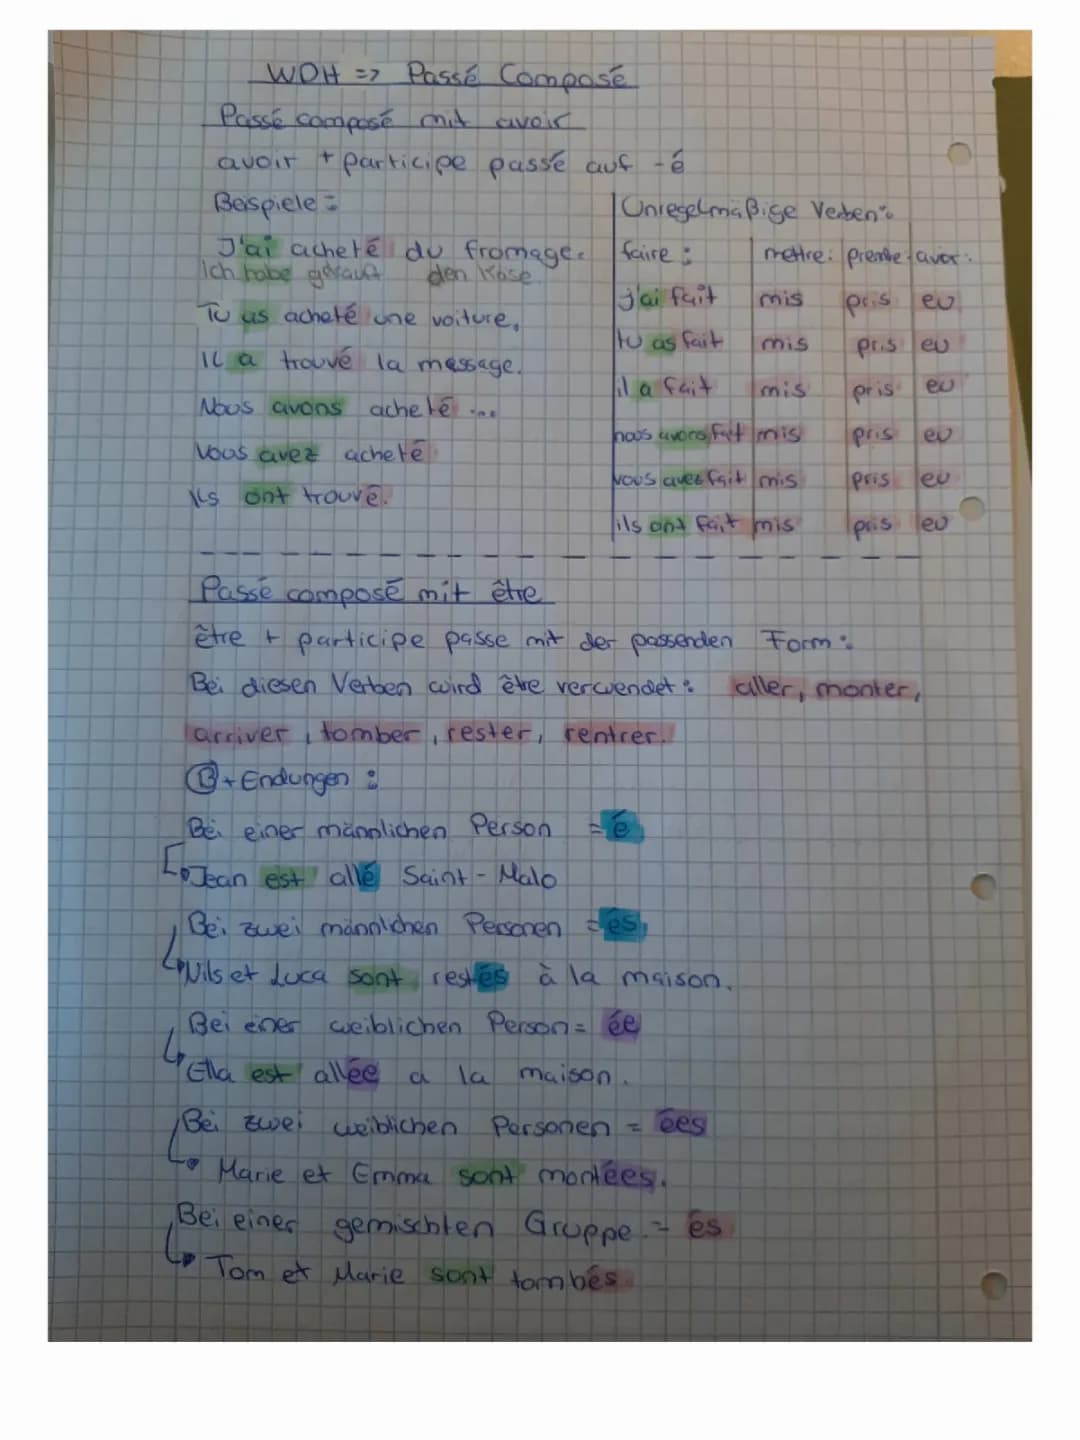 WDH => Passé Composé
Passé composé mit avoir
avoir + participe passé auf -é
Beispiele:
J'ai acheté du fromage.
Ich habe gekauft den Käse
Tu as acheté une voiture.
Il a trouvé la message.
Nous avons acheté ...
Vous avez acheté
Ils ont trouvé.
Unregelmäßige Verben:
faire: mettre: prendre avoir:
j'ai fait mis pris eu
tu as fait mis pris eu
il a fait mis pris eu
nous avons fait mis pris eu
vous avez fait mis pris eu
ils ont fait mis pris eu
Passé composé mit être
être + participe passe mit der passenden Form:
Bei diesen Verben wird être verwendet: aller, monter,
arriver, tomber, rester, rentrer.
+ Endungen:
Bei einer männlichen Person = é
Jean est allé Saint-Malo
Bei zwei männlichen Personen = és
Nils et Luca sont restés à la maison.
Bei einer weiblichen Person = ée
Ella est allée a la maison.
Bei zwei weiblichen Personen = ées
Marie et Emma sont montées.
Bei einer gemischten Gruppe = és
Tom et Marie sont tombés